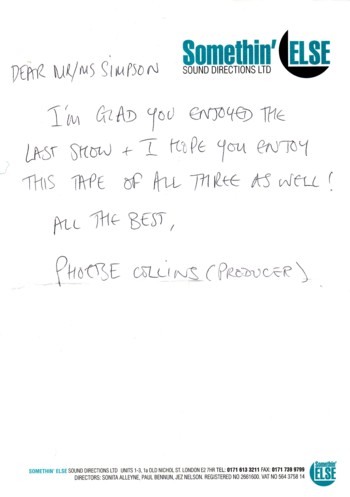 Somethin' ELSE
SOUND DIRECTIONS LTD
DEAR MR/MS SIMPSON
I'M GLAD YOU ENJOYED THE
LAST SHOW + I HOPE YOU ENJOY
THIS TAPE OF ALL THREE AS WELL!
ALL THE BEST,
PHOEBE COLLINS (PRODUCER)
Somethin' ELSE
SOMETHIN' ELSE SOUND DIRECTIONS LTD UNITS 1-3, 1a OLD NICHOL ST. LONDON E2 7HR TEL: 0171 613 3211 FAX: 0171 739 9799
DIRECTORS: SONITA ALLEYNE, PAUL BENNUN, JEZ NELSON. REGISTERED NO 2661600. VAT NO 564 3758 14